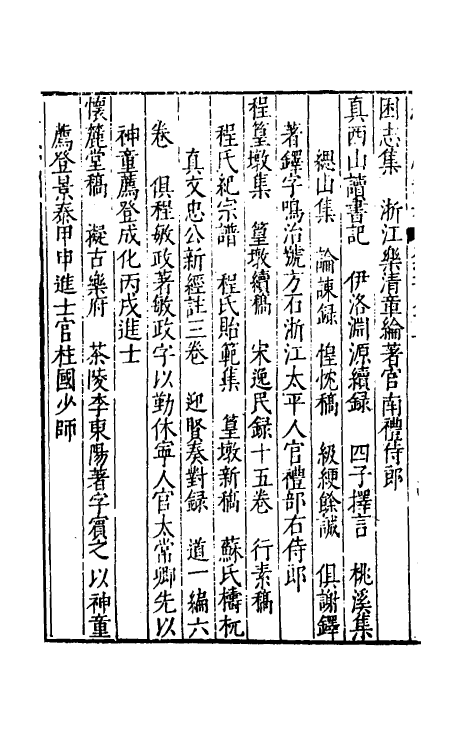 困志集　浙江樂清章綸著官南禮侍郎
真西山讀書記　伊洛淵源續録　四子擇言　桃溪集
緦山集　論諫録　惶忱稿　緩綆餘誠　俱謝鐸
著鐸字鳴治號方石浙江太平人官禮部右侍郎
程篁墩集　篁墩續稿　宋逸民録十五卷　行素稿
程氏祀宗譜　程氏貽範集　篁墩新稿　蘇氏檮杌
真文忠公新經註三卷　迎賢奏對録　道一編六
卷　俱程敏政著敏政字以勤休寧人官太常卿先以
神童薦登成化丙戌進士
懷麓堂稿　擬古樂府　茶陵李東陽著字賓之以神童
薦登景泰甲申進士官柱國少師